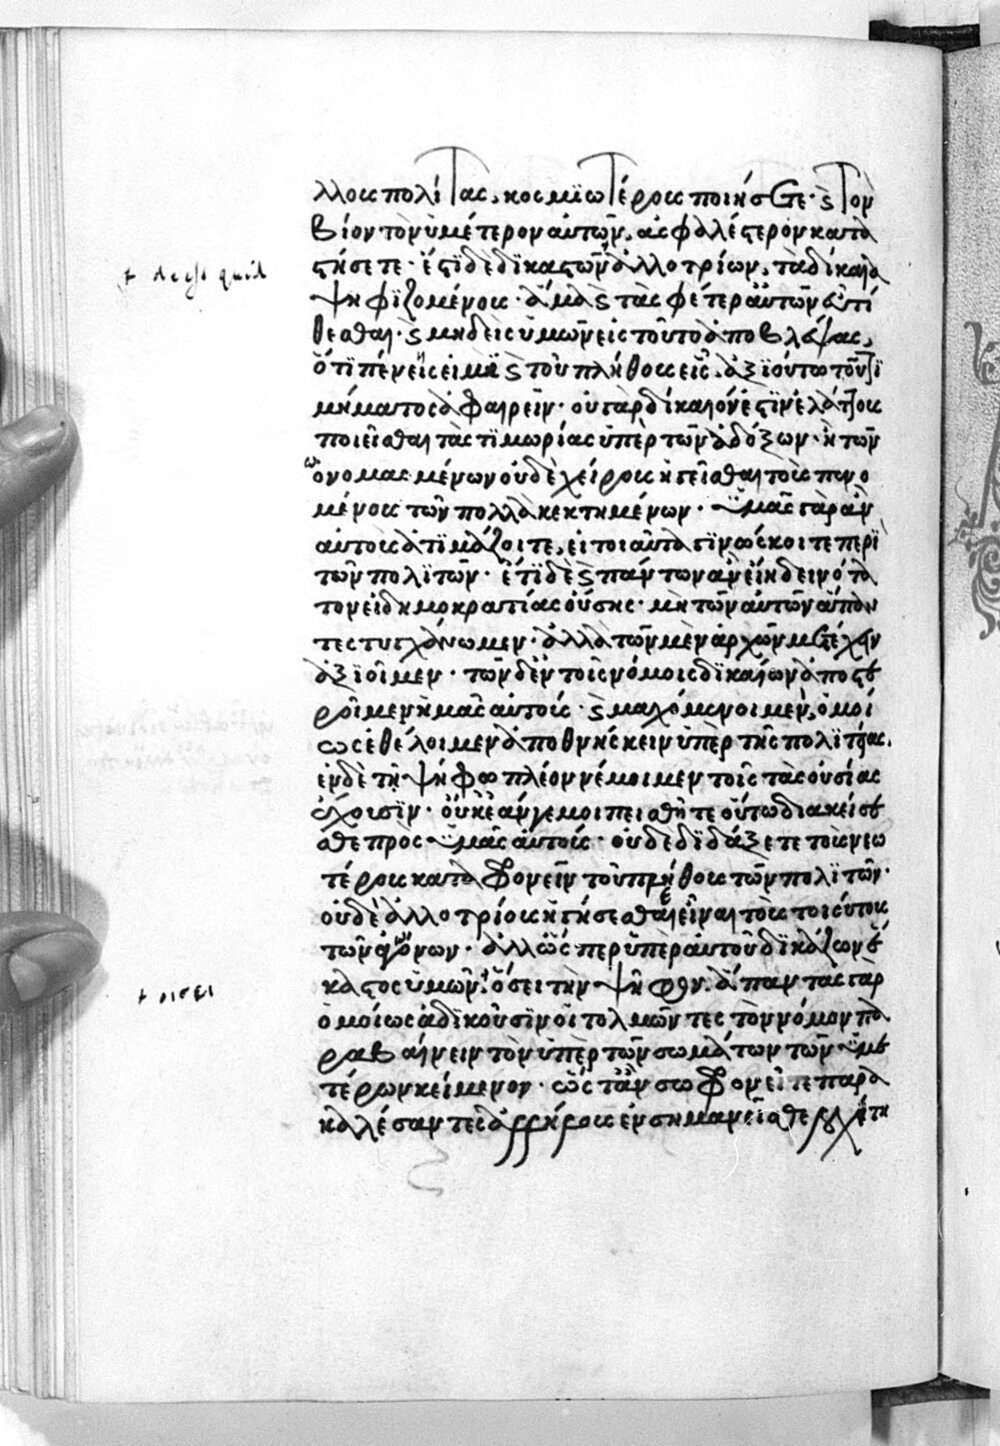 λλους πολίτας, κοσμιωτέρους ποιήσετε· καὶ τὸν
βίον τὸν ὑμέτερον αὐτῶν, ἀσφαλέστερον κατα
στήσετε· ἔστι δὲ δικαστῶν ἀλλοτρίων, τὰ δίκαια
+ deest quid
ψηφιζομένους· ἅμα καὶ τὰ σφέτερα αὐτῶν εὖ τί
θεσθαι· καὶ μηδεὶς ὑμῶν εἰς τοῦτο ἀποβλέψας,
ὅτι πένης εἰμὶ καὶ τοῦ πλήθους εἷς, ἀξιούτω τοῦ τι
μήματος ἀφαιρεῖν· οὐ γὰρ δίκαιόν ἐστιν ἐλάττους
ποιεῖσθαι τὰς τιμωρίας ὑπὲρ τῶν ἀδόξων· ἢ τῶν
ὠνομασμένων οὐδὲ χείρους ἡγεῖσθαι τοὺς πενο
μένους τῶν πολλὰ κεκτημένων· ὑμᾶς γὰρ ἂν
αὐτοὺς ἀτιμάζοιτε, εἰ τοιαῦτα γινώσκοιτε περὶ
τῶν πολιτῶν· ἔτι δὲ καὶ πάντων ἂν εἴη δεινότα
τον εἰ δημοκρατίας οὔσης· μὴ τῶν αὐτῶν ἅπαν
τες τυγχάνωμεν· ἀλλὰ τῶν μὲν ἀρχῶν μετέχειν
ἀξιοῖμεν· τῶν δ' ἐν τοῖς νόμοις δικαίων ἀποστε
ροῖμεν ἡμᾶς αὐτούς· καὶ μαχόμενοι μὲν, ὁμοί
ως ἐθέλοιμεν ἀποθνήσκειν ὑπὲρ τῆς πολιτείας,
ἐν δὲ τῇ ψήφῳ πλέον νέμοιμεν τοῖς τὰς οὐσίας
ἔχουσιν· οὔκ ἐάν γέ μοι πεισθῆτε οὕτω διακείσε
σθε πρὸς ὑμᾶς αὐτούς· οὐδὲ διδάξετε τοὺς νεω
τέρους καταφρονεῖν τοῦ πλήθους τῶν πολιτῶν·
οὐδὲ ἀλλοτρίους ἡγήσεσθαι εἶναι τοὺς τοιούτους
τῶν ἀγώνων· ἀλλ' ὥσπερ ὑπὲρ αὑτοῦ δικάζων ἕ
καστος ὑμῶν, οἴσει τὴν ψῆφον. ἅπαντας γὰρ
+ οισει
ὁμοίως ἀδικοῦσιν οἱ τολμῶντες τὸν νόμον πα
ραβαίνειν τὸν ὑπὲρ τῶν σωμάτων τῶν ὑμε
τέρων κείμενον· ὥστ' ἂν σωφρονεῖτε παρα
καλέσαντες ἀλλήλους ἐνσημανεῖσθε